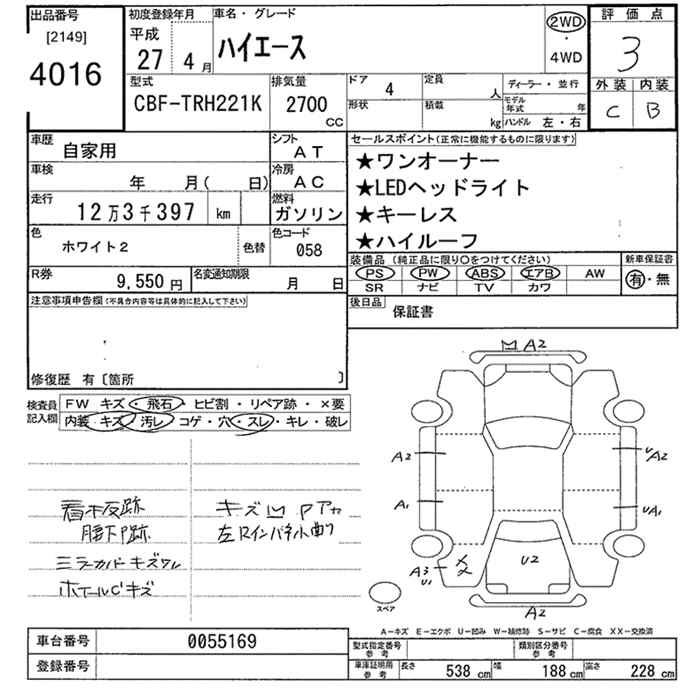 出品番号
[2149]
4016
初度登録年月
平成
27年 4月
車名・グレード
ハイエース
2WD
・
4WD
評価点
3
外装 内装
C B
型式
CBF-TRH221K
排気量
2700
CC
ドア 4
形状
定員 人
積載 kg
ディーラー・並行
モデル年式 年
ハンドル 左・右
車歴
自家用
シフト
AT
車検
年 月( 日)
冷房
AC
走行
12万3千397 km
燃料
ガソリン
色
ホワイト2
色替
色コード
058
R券
9,550円
名変通知期限
月 日
セールスポイント(正常に機能するものに限ります)
★ワンオーナー
★LEDヘッドライト
★キーレス
★ハイルーフ
装備品 (純正品に限り○をつけてください)
PS PW ABS エアB AW
SR ナビ TV カワ
新車保証書
有・無
後日品
保証書
注意事項申告欄(不具合内容等は具体的に記入して下さい)
修復歴 有〔箇所 〕
検査員記入欄
FW キズ・飛石・ヒビ割・リペア跡・×要
内装 キズ・汚レ・コゲ・穴・スレ・キレ・破レ
看板跡
腰下P跡
ミラーカバーキズワレ
ホイールCキズ
キズ凹 Pアカ
左Rインパネ小曲り
A2
A2
UA2
A1
UA1
A3
U1
U2
A2
スペア
A-キズ E-エクボ U-凹み W-補修跡 S-サビ C-腐食 XX-交換済
車台番号
0055169
登録番号
型式指定番号
参考
類別区分番号
参考
車庫証明用
参考
長さ 538 cm
幅 188 cm
高さ 228 cm